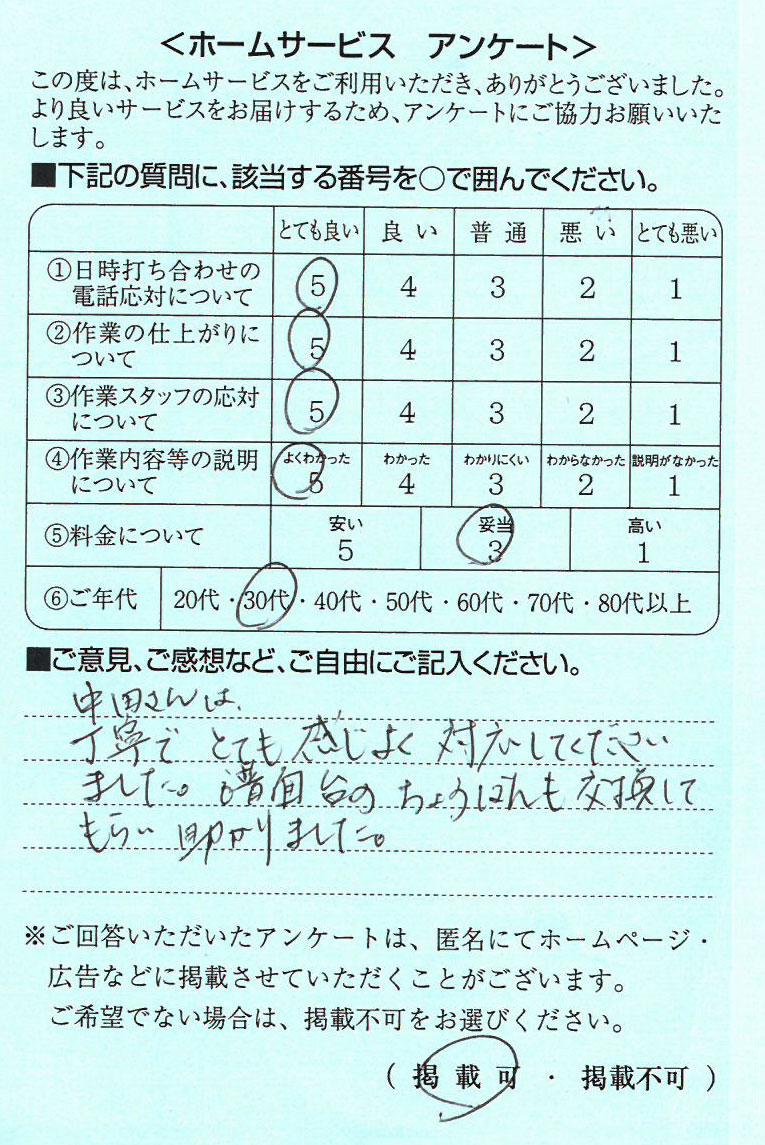 ＜ホームサービス　アンケート＞
この度は、ホームサービスをご利用いただき、ありがとうございました。
より良いサービスをお届けするため、アンケートにご協力お願いいた
します。
■下記の質問に、該当する番号を○で囲んでください。
とても良い 良い 普通 悪い とても悪い
①日時打ち合わせの
電話応対について 5 4 3 2 1
②作業の仕上がりに
ついて 5 4 3 2 1
③作業スタッフの応対
について 5 4 3 2 1
④作業内容等の説明 よくわかった わかった わかりにくい わからなかった 説明がなかった
について 5 4 3 2 1
⑤料金について 安い 妥当 高い
5 3 1
⑥ご年代 20代・30代・40代・50代・60代・70代・80代以上
■ご意見、ご感想など、ご自由にご記入ください。
中田さんは、
丁寧で とても 感じよく 対応してください
ました。譜面台の ちょうばんも 交換して
もらい 助かりました。
※ご回答いただいたアンケートは、匿名にてホームページ・
広告などに掲載させていただくことがございます。
ご希望でない場合は、掲載不可をお選びください。
( 掲載可 ・ 掲載不可 )